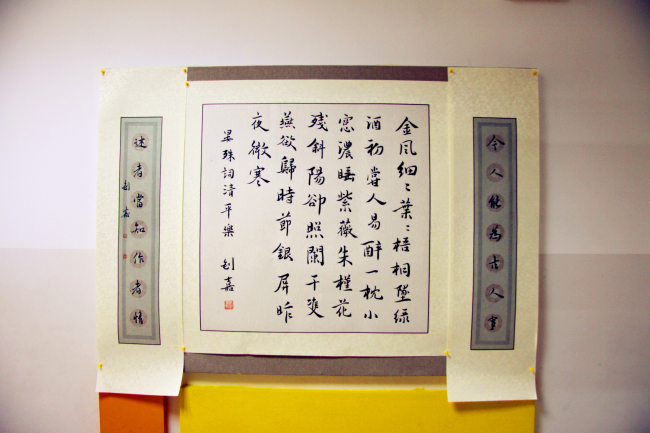 今人能為古人
金風細〻葉〻梧桐墜綠
酒初嘗人易醉一枕小
窓濃睡紫薇朱槿花
残斜陽卻照闌干雙
燕欲歸時節銀屏昨
夜微寒
晏殊詞清平樂 刘嘉
述者當知作者情
刘嘉